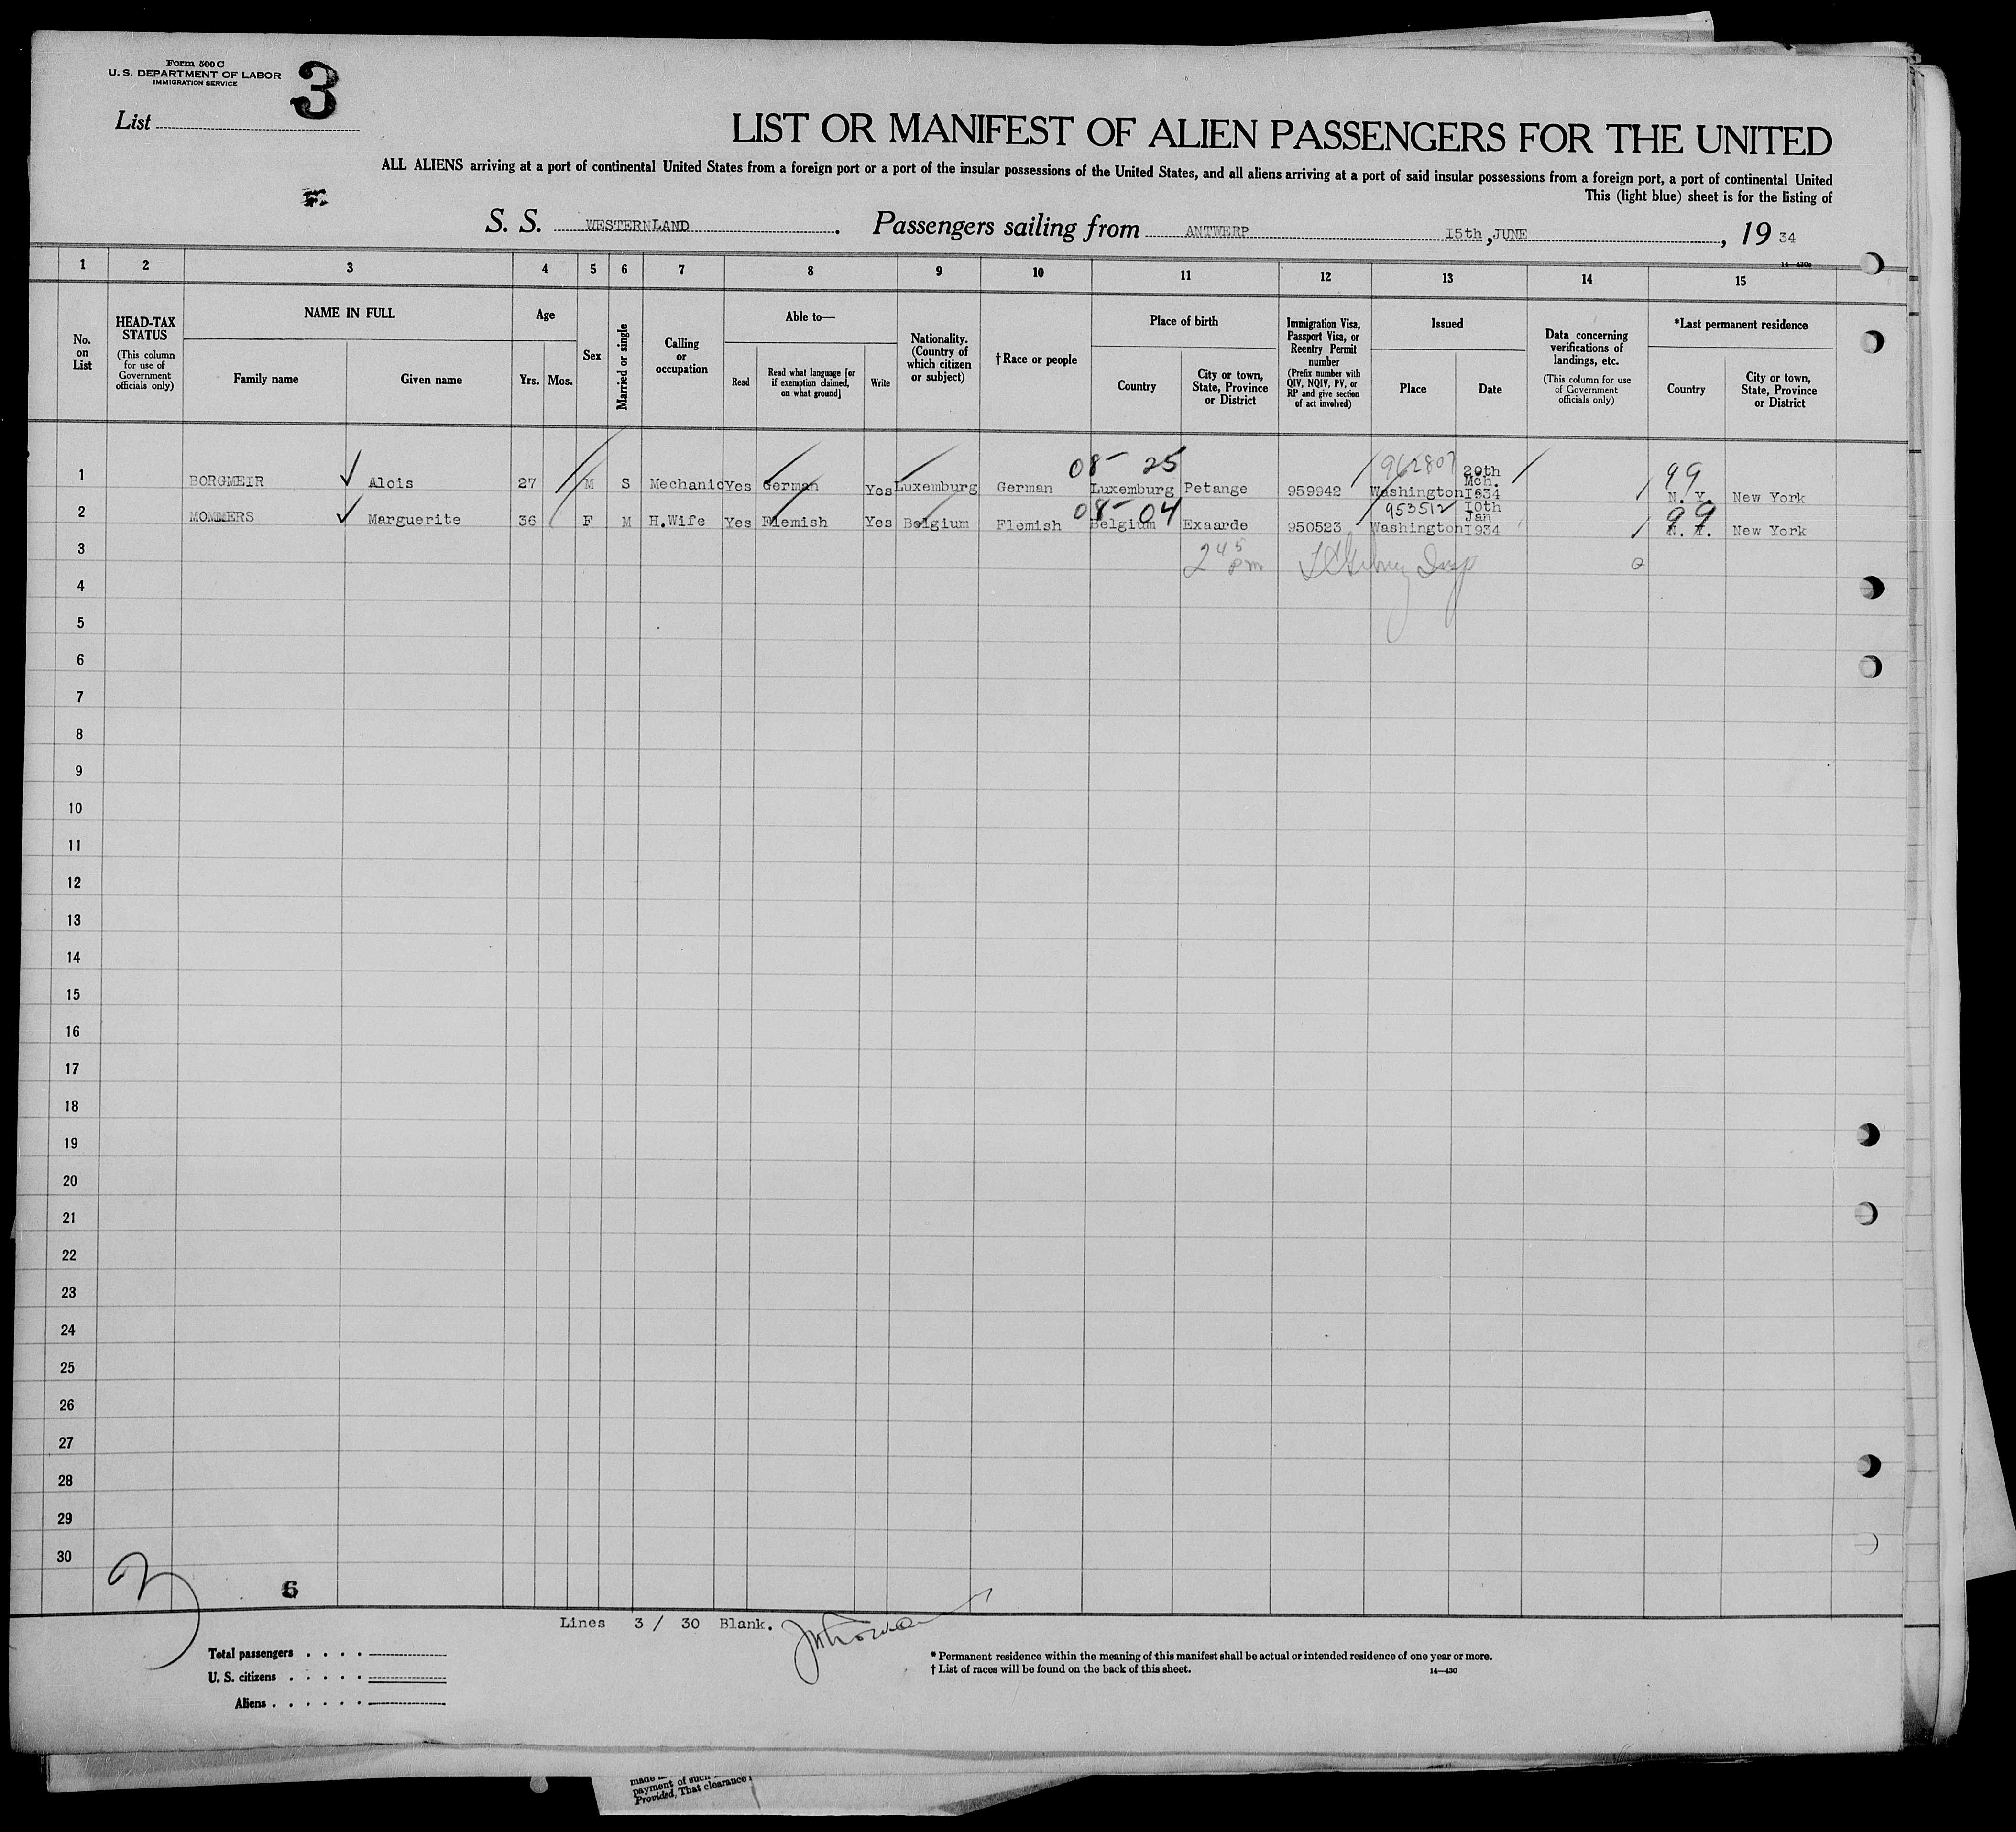 Form 500 C
U. S. DEPARTMENT OF LABOR
IMMIGRATION SERVICE
3
List
LIST OR MANIFEST OF ALIEN PASSENGERS FOR THE UNITED
ALL ALIENS arriving at a port of continental United States from a foreign port or a port of the insular possessions of the United States, and all aliens arriving at a port of said insular possessions from a foreign port, a port of continental United
This (light blue) sheet is for the listing of
S. S. WESTERNLAND. Passengers sailing from ANTWERP 15th, JUNE, 19 34
14—430a
1 2 3 4 5 6 7 8 9 10 11 12 13 14 15
No. on List
HEAD-TAX STATUS
(This column for use of Government officials only)
NAME IN FULL
Family name Given name
Age
Yrs. Mos.
Sex
Married or single
Calling or occupation
Able to—
Read
Read what language [or if exemption claimed, on what ground]
Write
Nationality. (Country of which citizen or subject)
†Race or people
Place of birth
Country
City or town, State, Province or District
Immigration Visa, Passport Visa, or Reentry Permit number
(Prefix number with QIV, NQIV, PV, or RP and give section of act involved)
Issued
Place Date
Data concerning verifications of landings, etc.
(This column for use of Government officials only)
*Last permanent residence
Country
City or town, State, Province or District
08- 25 962807 99
1 BORGMEIR Alois 27 M S Mechanic Yes German Yes Luxemburg German Luxemburg Petange 959942 Washington 20th Mch. 1934 N. Y. New York
08- 04 953512 99
2 MOMMERS Marguerite 36 F M H.Wife Yes Flemish Yes Belgium Flemish Belgium Exaarde 950523 Washington 10th Jan 1934 N. Y. New York
3 2 45 pm Insp
4
5
6
7
8
9
10
11
12
13
14
15
16
17
18
19
20
21
22
23
24
25
26
27
28
29
30
2 6
Lines 3 / 30 Blank.
Total passengers
U. S. citizens
Aliens
* Permanent residence within the meaning of this manifest shall be actual or intended residence of one year or more.
† List of races will be found on the back of this sheet.
14—430
payment of such
Provided, That clearance